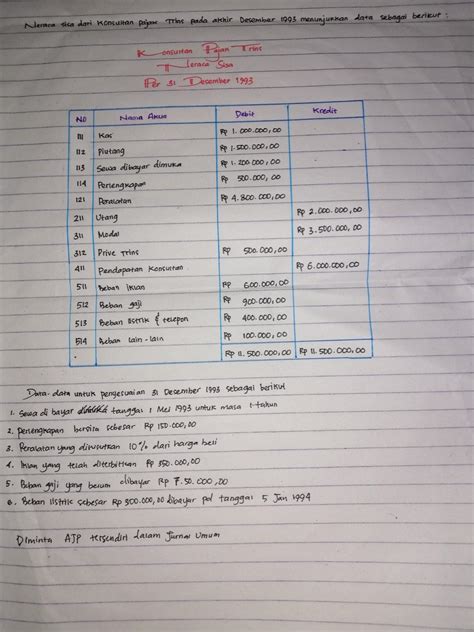 Neraca sisa dari Konsultan pajak Trins pada akhir Desember 1993 menunjukkan data sebagai berikut :
Konsultan Pajan Trins
Neraca Sisa
Per 31 Desember 1993
NO Nama Akun Debit Kredit
111 Kas Rp 1.000.000,00
112 Piutang Rp 1.500.000,00
113 Sewa dibayar dimuka Rp 1.200.000,00
114 Perlengkapan Rp 500.000,00
121 Peralatan Rp 4.800.000,00
211 Utang Rp 2.000.000,00
311 Modal Rp 3.500.000,00
312 Prive Trins Rp 500.000,00
411 Pendapatan Konsultan Rp 6.000.000,00
511 Beban Iklan Rp 600.000,00
512 Beban gaji Rp 900.000,00
513 Beban listrik & telepon Rp 400.000,00
514 Beban lain-lain Rp 100.000,00
Rp 11.500.000,00 Rp 11.500.000,00
Data-data untuk penyesuaian 31 Desember 1993 sebagai berikut
1. Sewa di bayar tanggal 1 Mei 1993 untuk masa 1 tahun
2. Perlengkapan bersisa sebesar Rp 150.000,00
3. Peralatan yang disusutkan 10% dari harga beli
4. Iklan yang telah diterbitkan Rp 350.000,00
5. Beban gaji yang belum dibayar Rp 7.50.000,00
6. Beban listrik sebesar Rp 300.000,00 dibayar pd tanggal 5 Jan 1994
Diminta AJP tersendiri dalam Jurnal Umum